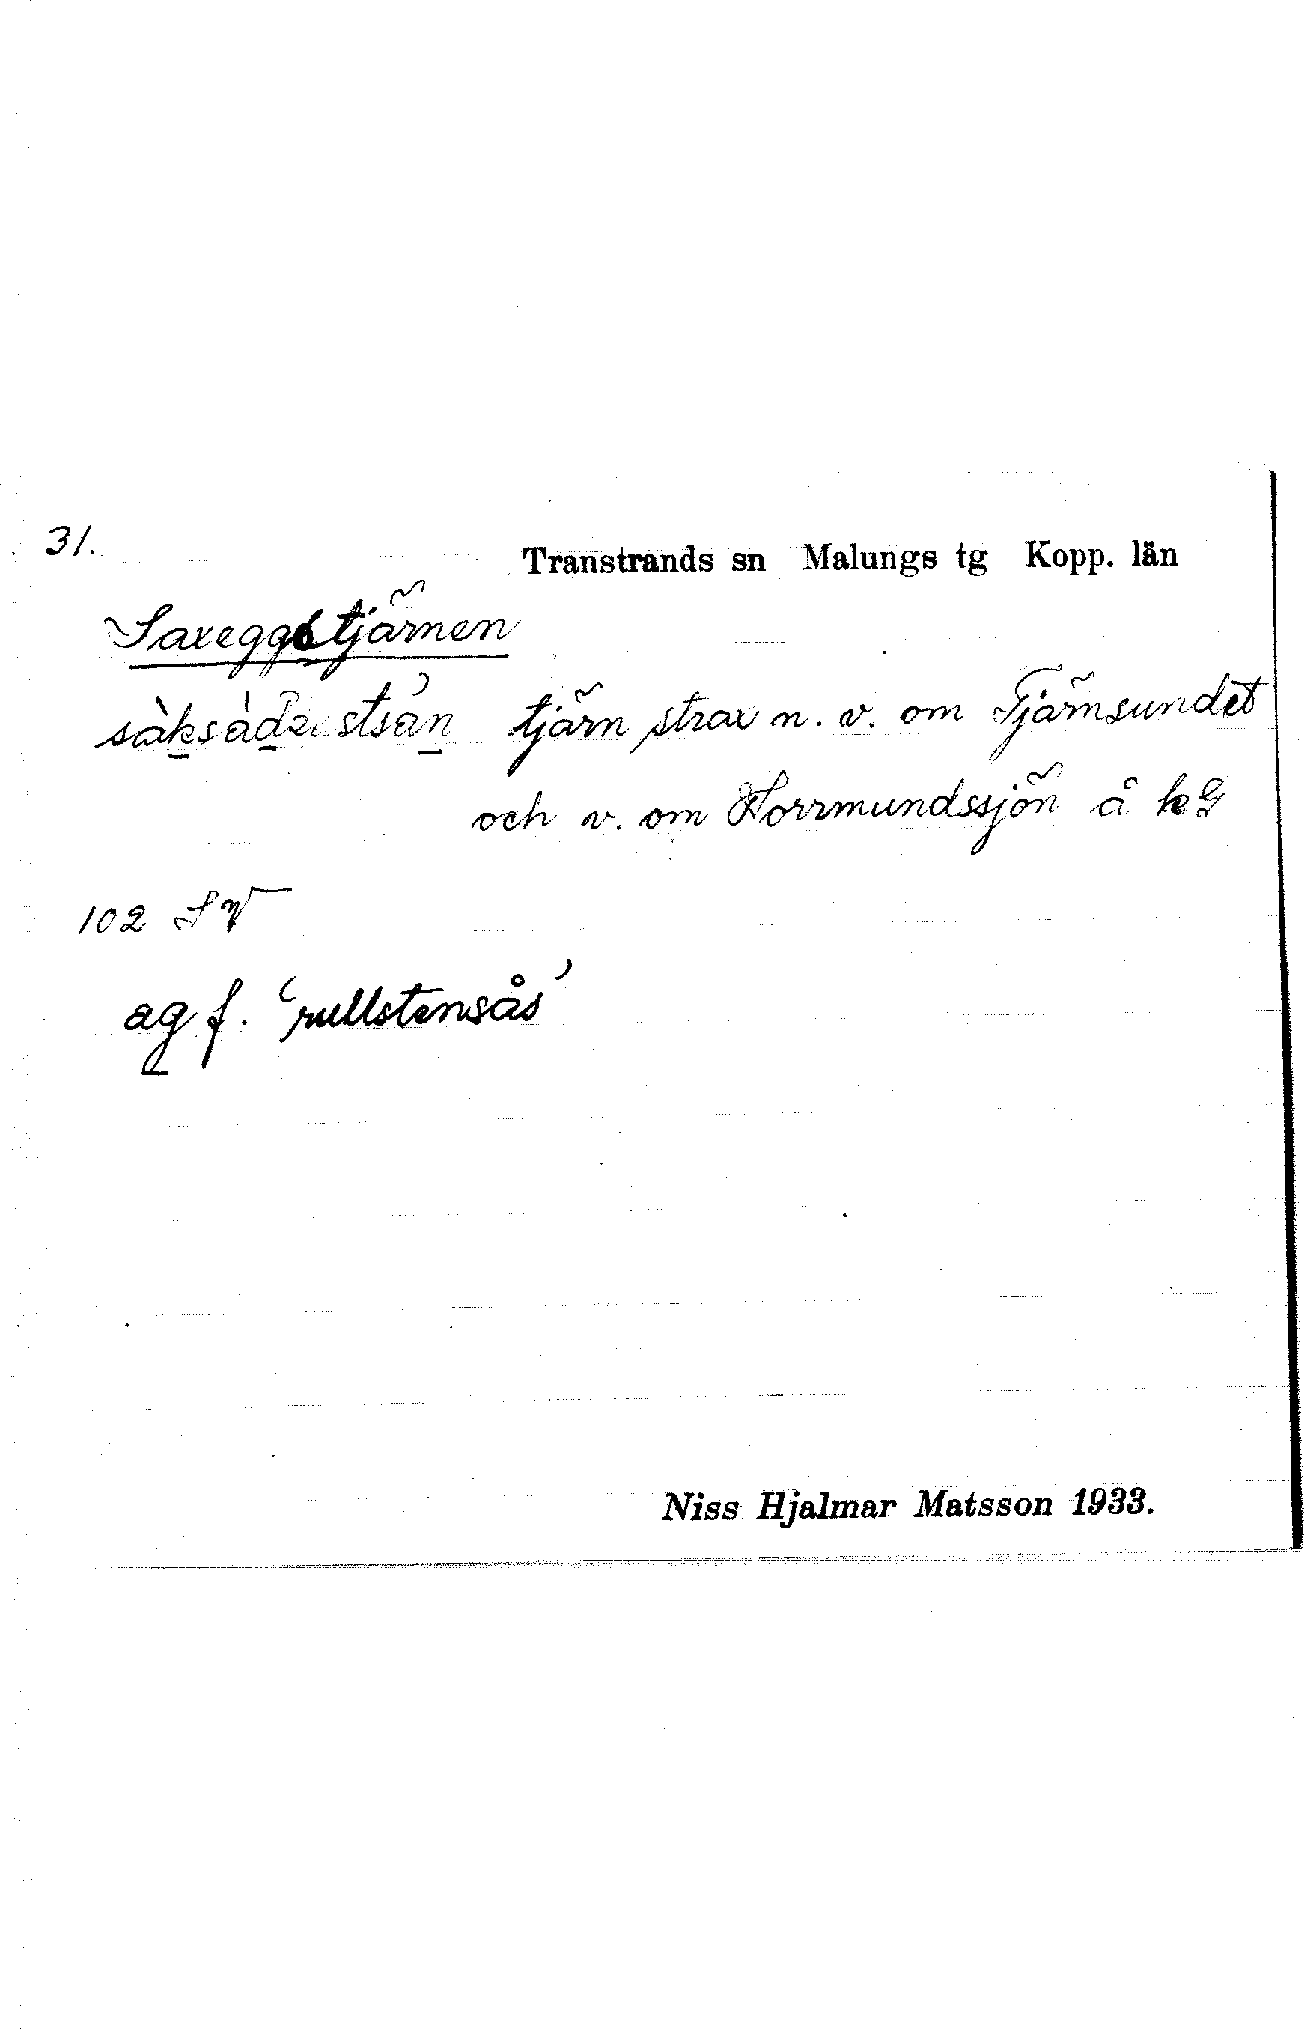 31.
Transtrands sn Malungs tg Kopp. län
Saxeggstjärnen
tjärn strax n. v. om Tjärnsundet
och v. om Horrmundssjön å kG
102 SV
ag f. 'rullstensås'
Niss Hjalmar Matsson 1933.